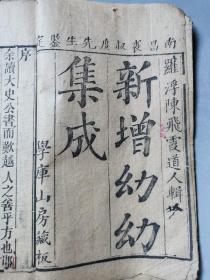 南昌裘叔度先生鑒定
羅浮陳飛霞道人輯
新增幼幼
集成
學庫山房藏板
序
余讀太史公書而歎越人之善乎方也